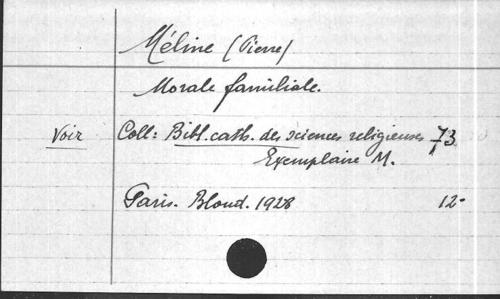 Méline (Pierre)
Morale familiale.
Voir Coll: Bibl. cath. des sciences religieuses 73
Exemplaire M.
Paris. Bloud. 1928 12-